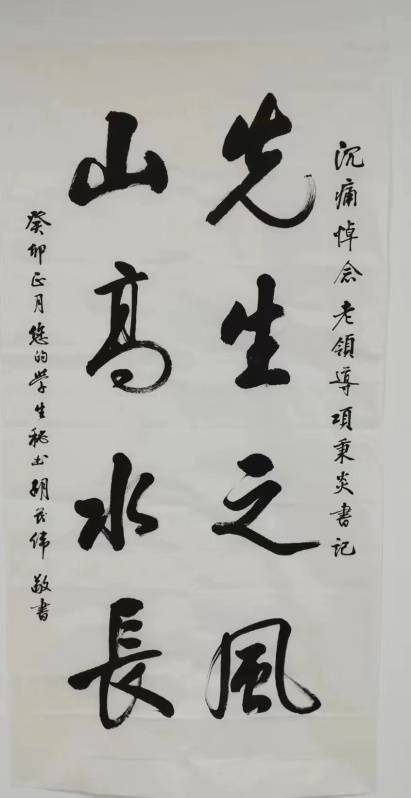 沉痛悼念老領導項秉炎書记
先生之風
山高水長
癸卯正月您的学生秘书胡茂伟 敬書